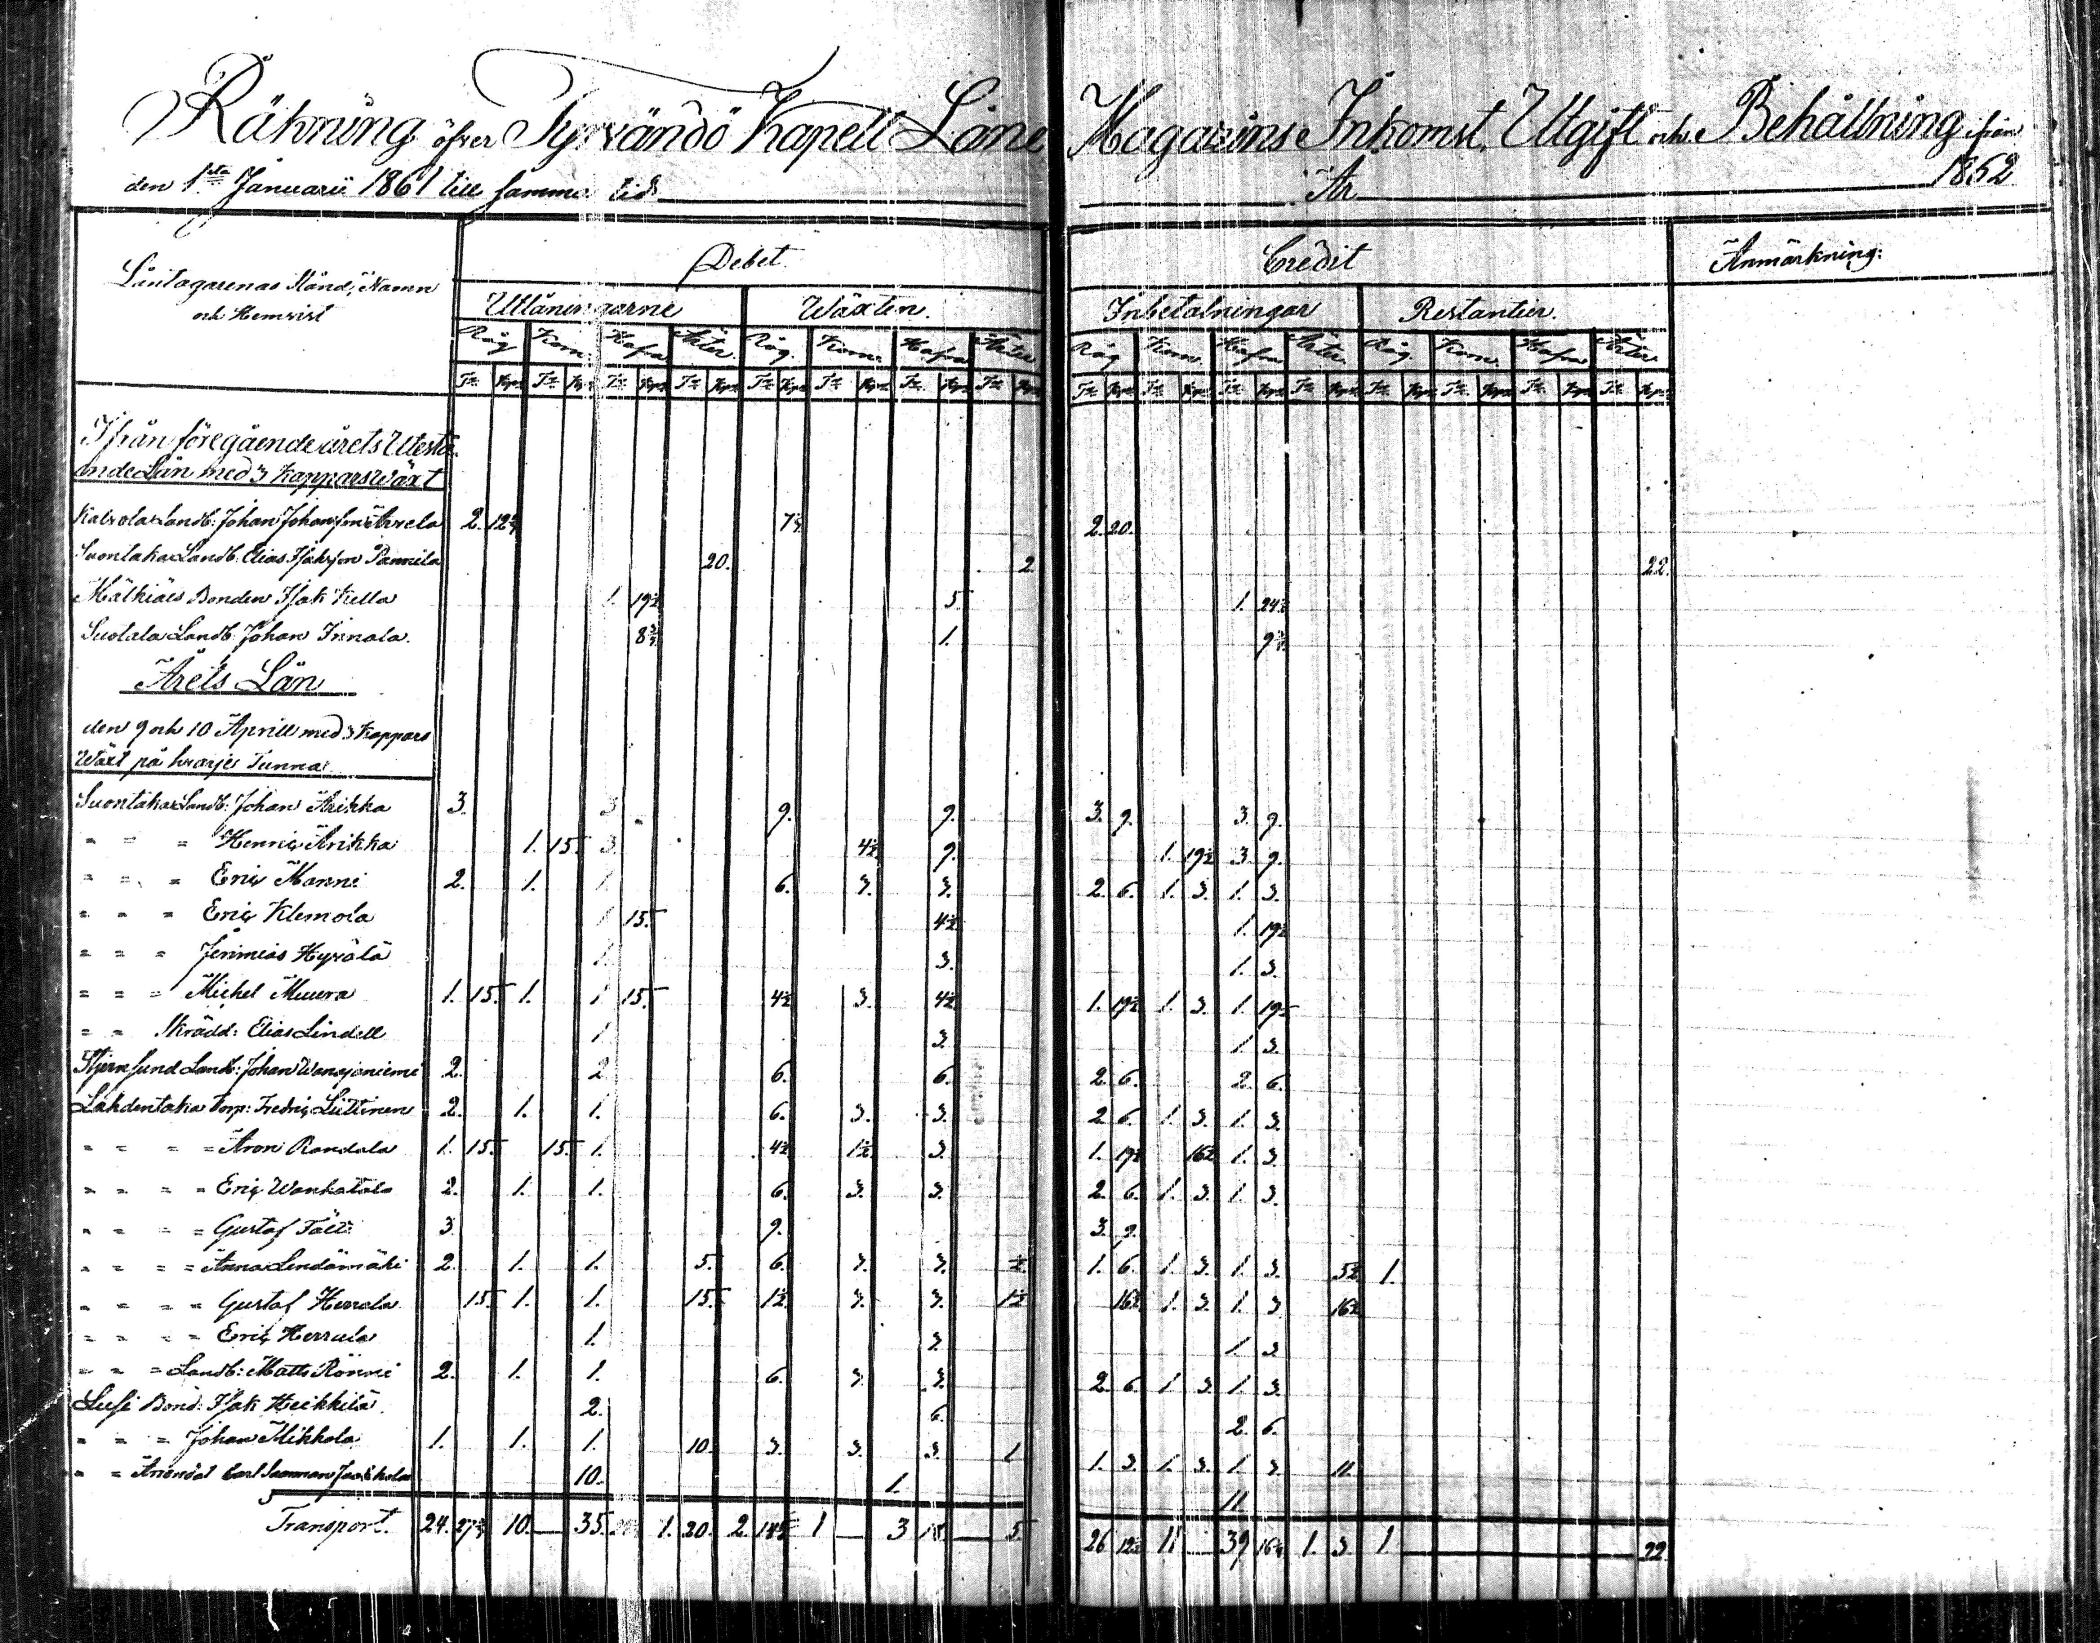 Räkning öfver Tyrvändö Kapell Låne Magazins Inkomst, Utgift och Behållning ifrån
den 1sta Januarii 1861 till samma tid År 1862
Låntagarenas Stånd, Namn och Hemvist
Debet.
Credit
Anmärkning:
Utlåningarne Wäxten. Inbetalningar Restantier.
Råg Korn. Hafra Ärter Råg. Korn. Hafra Ärter Råg Korn. Hafra Ärter Råg. Korn. Hafra Ärter
Tr Kpr Tr Kpr Tr Kpr Tr Kpr Tr Kpr Tr Kpr Tr Kpr Tr Kpr Tr Kpr Tr Kpr Tr Kpr Tr Kpr Tr Kpr Tr Kpr Tr Kpr Tr Kpr
Ifrån föregående årets Utestå-
ende Lån med 3 Kappars Wäxt
Landb: Johan Johansson 2. 12¾ 7¼ 2. 20.
Suontaka Landb. Elias Isaksson Pannila 20. 2. 22.
Mälkiäis Bonden Isak Kella 1. 19½ 5. 1. 24½
Suotala Landb: Johan Innala. 8¾ 1. 9¾
Årets Lån
den 9 och 10 Aprill med 3 Kappars
Wäxt på hvarje Tunna
Suontaka Landb: Johan Arikka 3. 3. 9. 9. 3. 9. 3. 9.
" " " Henric Arikka 1. 15. 3. 4½ 9. 1. 19½ 3. 9.
" " " Eric Manni 2. 1. 1. 6. 3. 3. 2. 6. 1. 3. 1. 3.
" " " Eric Klemola 1. 15. 4½ 1. 19½
" " " Jeremias Hyrälä 1. 3. 1. 3.
" " " Michel Muura 1. 15. 1. 1. 15. 4½ 3. 4½ 1. 19½ 1. 3. 1. 19½
" " Skrädd: Elias Lindell 1. 3. 1. 3.
Stjernsund Landb: Johan Wanajaniemi 2. 2. 6. 6. 2. 6. 2. 6.
Lahdentaka Torp: Fredric Liittinen 2. 1. 1. 6. 3. 3. 2. 6. 1. 3. 1. 3.
" " " " Aron Randala 1. 15. 15. 1. 4½ 1½ 3. 1. 19½ 16½ 1. 3.
" " " " Eric Wanhatalo 2. 1. 1. 6. 3. 3. 2. 6. 1. 3. 1. 3.
" " " " Gustaf 3. 9. 3. 9.
" " " " Anna Lendämäki 2. 1. 1. 5. 6. 3. 3. ½ 1. 6. 1. 3. 1. 3. 5½ 1.
" " " " Gustaf Herrala 15. 1. 1. 15. 1½ 3. 3. 1½ 16½ 1. 3. 1. 3. 16½
" " " " Eric Herrala 1. 3. 1. 3.
" " " Landb: Matts Rönni 2. 1. 1. 6. 3. 3. 2. 6. 1. 3. 1. 3.
Lusi Bond: Isak Heikkilä 2. 6. 2. 6.
" " " Johan Mikkola 1. 1. 1. 10. 3. 3. 3. 1 1. 3. 1. 3. 1. 3. 11.
" " Carl 10. 1. 11.
Transport. 24. 27¾ 10. — 35. 1. 20. 2. 18¾ 1 — 3 18. — 5. 26 12¾ 11 — 39 16¾ 1. 3. 1. — 22.